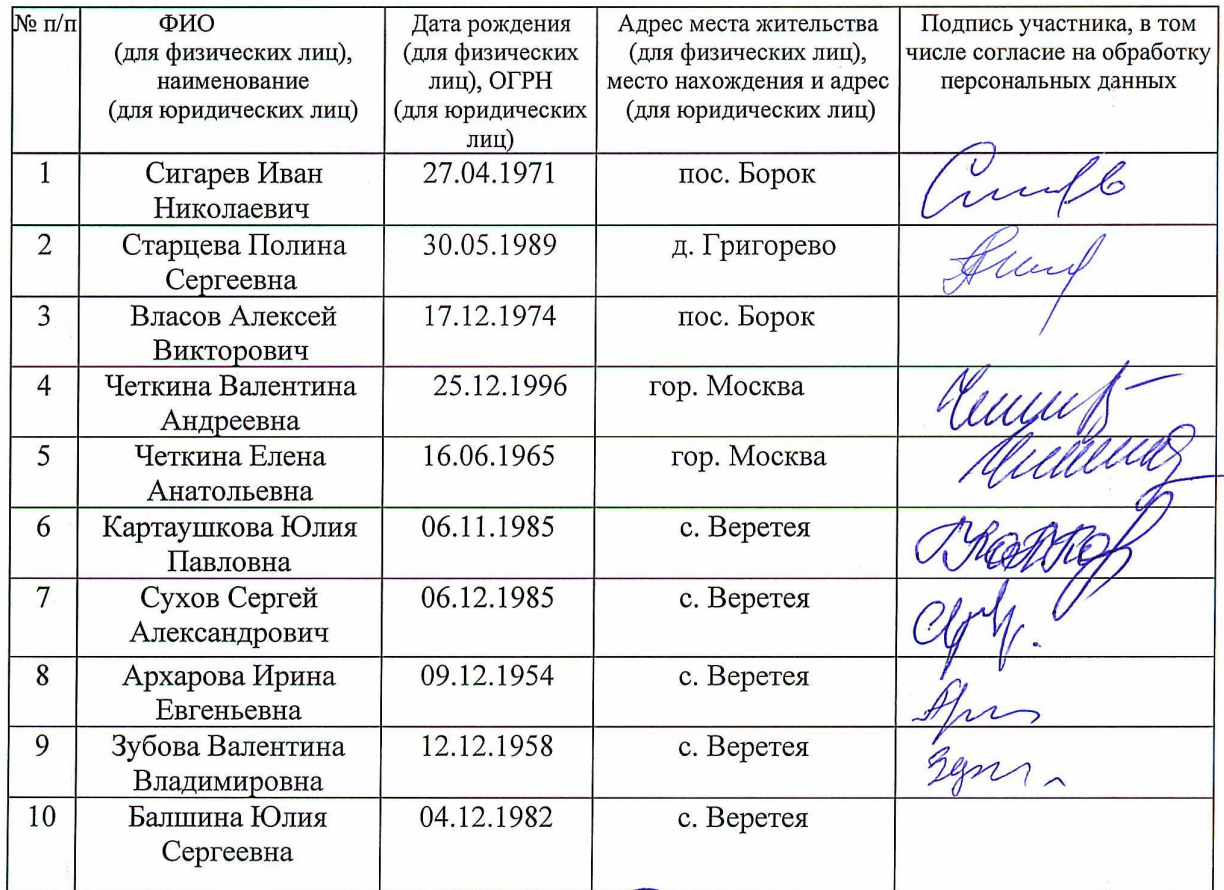 № п/п
ФИО
(для физических лиц),
наименование
(для юридических лиц)
Дата рождения
(для физических
лиц), ОГРН
(для юридических
лиц)
Адрес места жительства
(для физических лиц),
место нахождения и адрес
(для юридических лиц)
Подпись участника, в том
числе согласие на обработку
персональных данных
1
Сигарев Иван
Николаевич
27.04.1971
пос. Борок
2
Старцева Полина
Сергеевна
30.05.1989
д. Григорево
3
Власов Алексей
Викторович
17.12.1974
пос. Борок
4
Четкина Валентина
Андреевна
25.12.1996
гор. Москва
5
Четкина Елена
Анатольевна
16.06.1965
гор. Москва
6
Картаушкова Юлия
Павловна
06.11.1985
с. Веретея
7
Сухов Сергей
Александрович
06.12.1985
с. Веретея
8
Архарова Ирина
Евгеньевна
09.12.1954
с. Веретея
9
Зубова Валентина
Владимировна
12.12.1958
с. Веретея
10
Балшина Юлия
Сергеевна
04.12.1982
с. Веретея